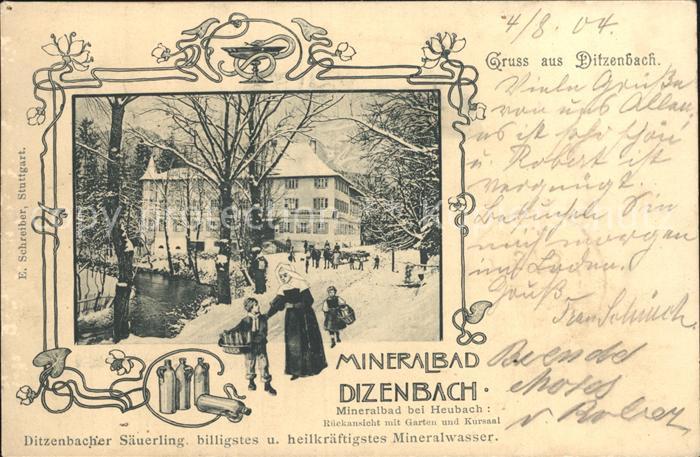 4/8. 04.
Gruss aus Ditzenbach.
Viele Grüße
von uns Allen,
es ist sehr schön
u. Robert ist
vergnügt.
Sie
morgen
im Laden.
Gruß
Frau
E. Schreiber, Stuttgart.
MINERALBAD
DIZENBACH.
Mineralbad bei Heubach:
Rückansicht mit Garten und Kursaal
Ditzenbacher Säuerling, billigstes u. heilkräftigstes Mineralwasser.